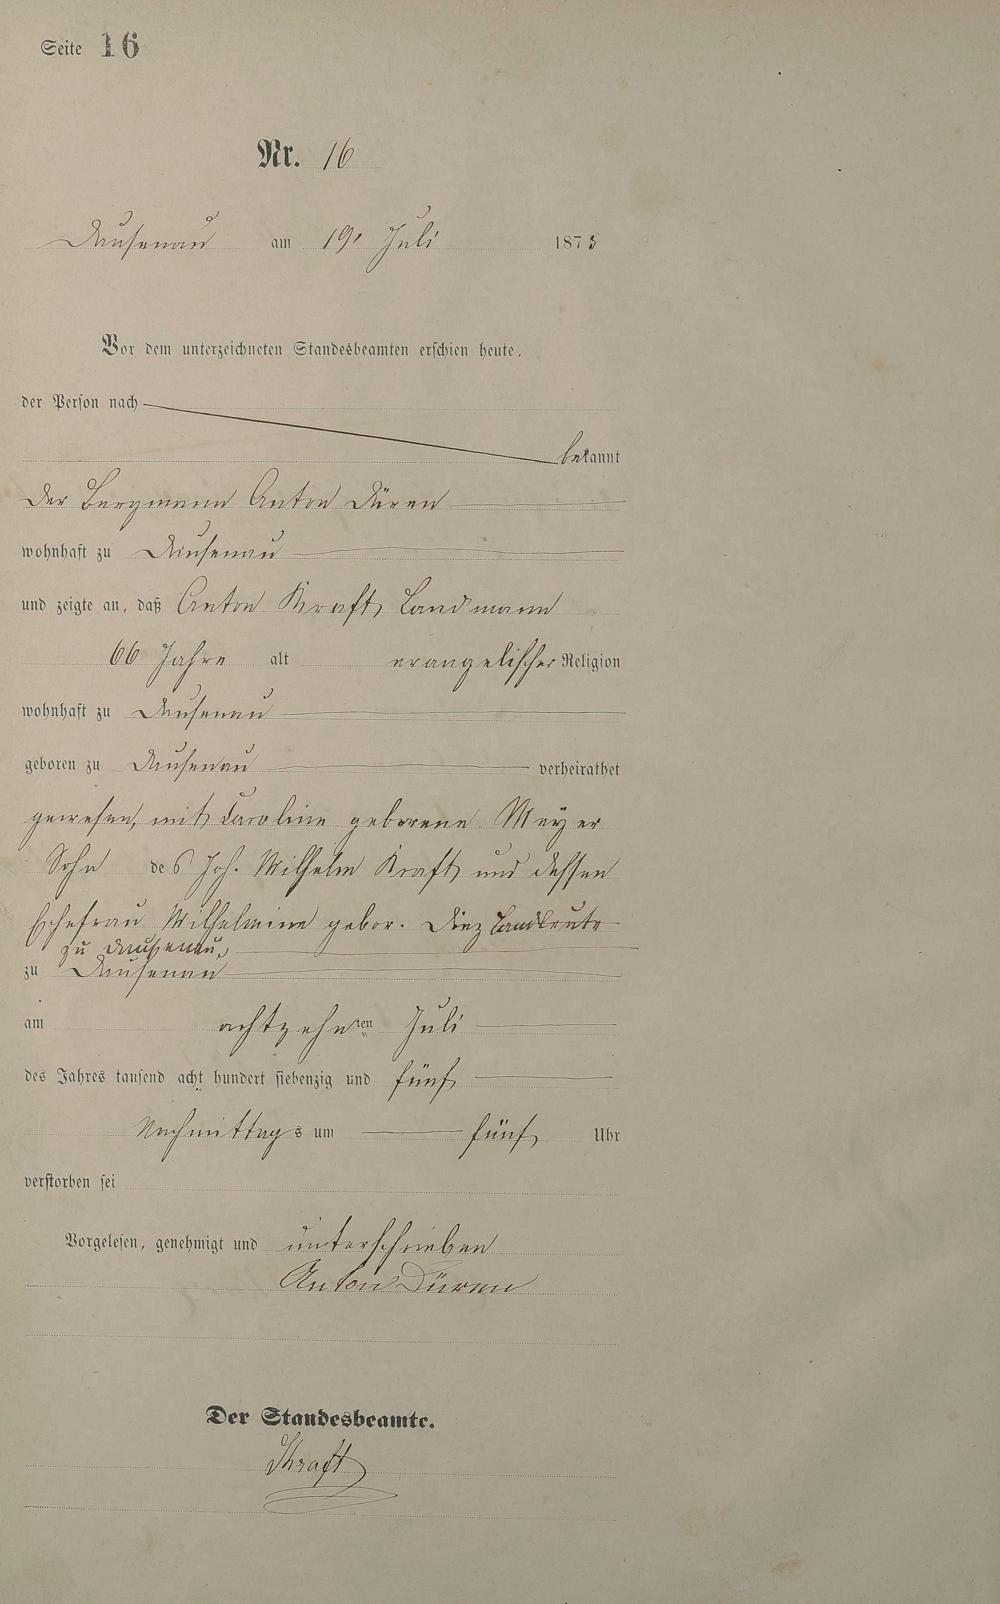 Seite 16
Nr. 16
Dausenau am 19. Juli 1875
Vor dem unterzeichneten Standesbeamten erschien heute.
der Person nach
bekannt
Der Bergmann Anton Düren
wohnhaft zu Dausenau
und zeigte an, daß Anton Kraft, Landmann
66 Jahre alt evangelischer Religion
wohnhaft zu Dausenau
geboren zu Dausenau verheirathet
gewesen, mit Caroline geborene Meyer
Sohn des Joh. Wilhelm Kraft, und dessen
Ehefrau Wilhelmine gebor. Diez Landleute
zu Dausenau,
zu Dausenau
am achtzehnten Juli
des Jahres tausend acht hundert siebenzig und fünf,
Nachmittags um fünf, Uhr
verstorben sei
Vorgelesen, genehmigt und unterschrieben
Anton Düren
Der Standesbeamte.
Kraft